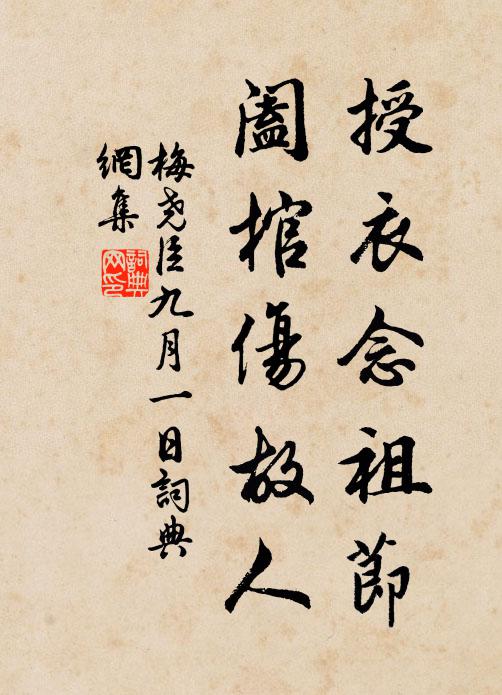 授衣念祖節
闔棺傷故人
梅堯臣九月一日詞典
網集
詞典
网印